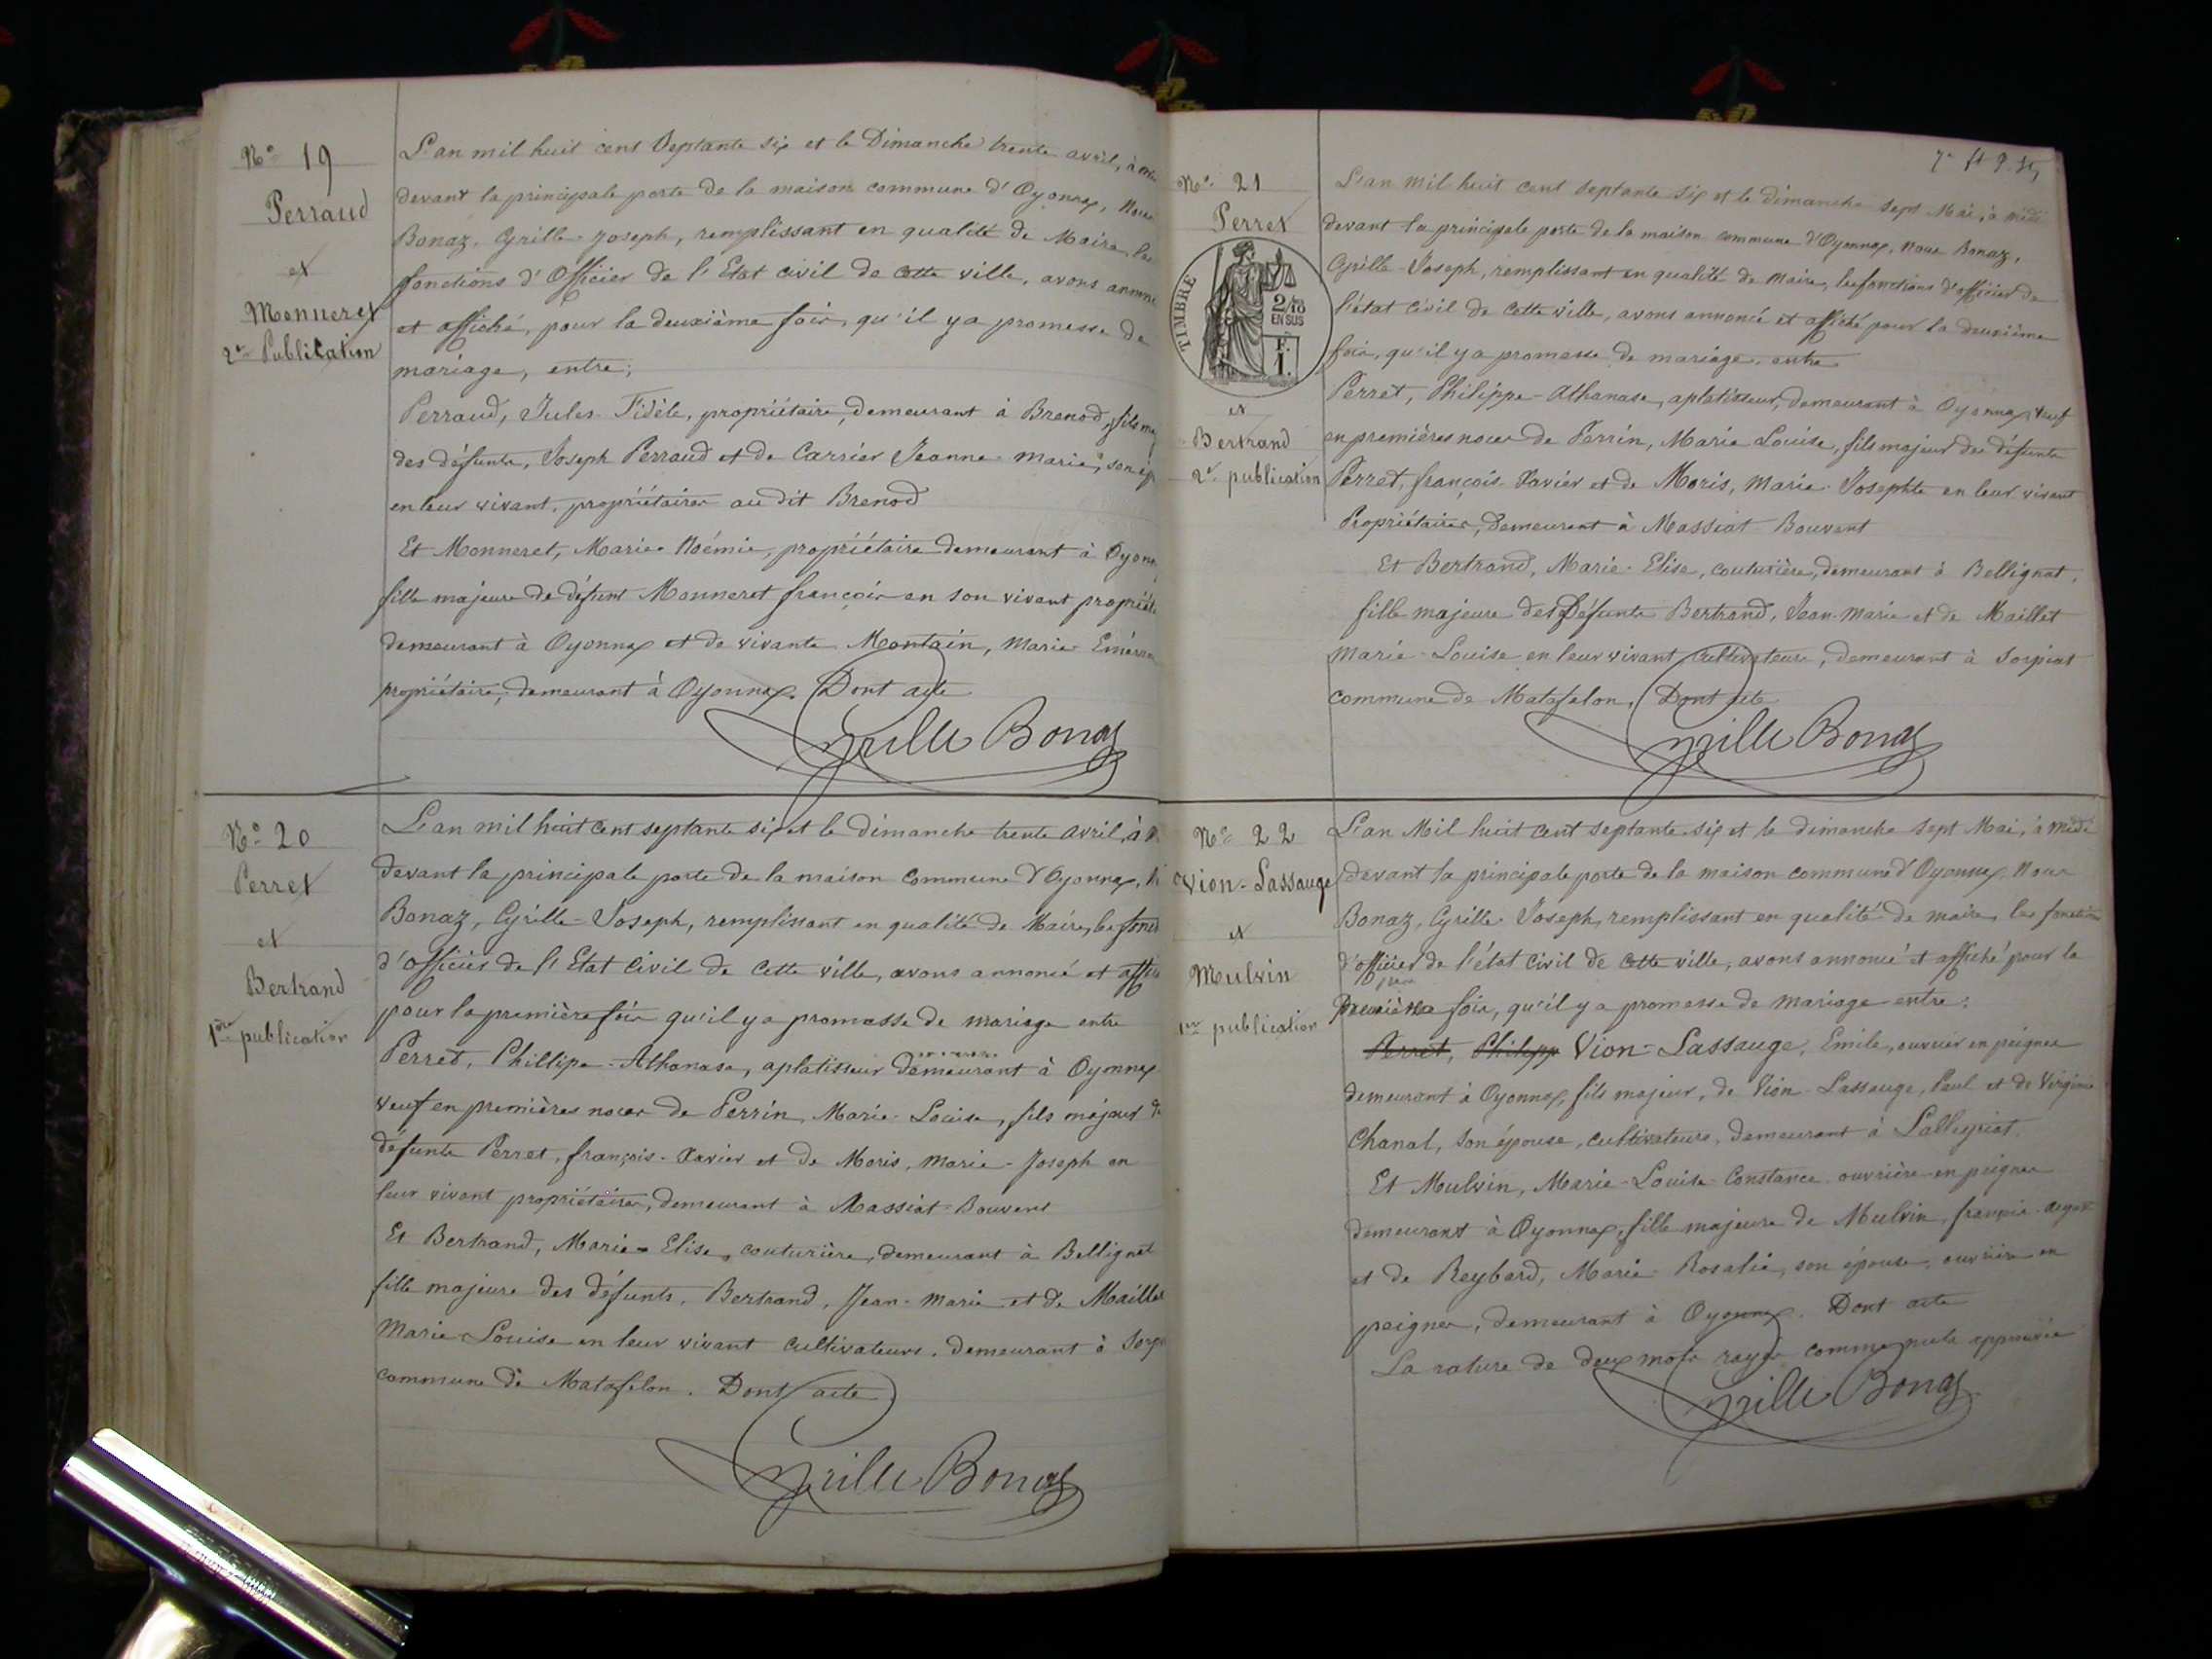 N° 19
Perraud
et
Monneret
2e Publication
L'an mil huit cent Septante six et le Dimanche trente avril, à
devant la principale porte de la maison commune d'Oyonnax, Nous
Bonaz, Cyrille-Joseph, remplissant en qualité de Maire, les
fonctions d'Officier de l'Etat civil de cette ville, avons
et affiché, pour la deuxième fois, qu'il y a promesse de
mariage, entre;
Perraud, Jules-Fidèle, propriétaire, demeurant à Brenod, fils
des défunts, Joseph Perraud et de Carrier Jeanne-Marie, son
en leur vivant, propriétaires au dit Brenod
Et Monneret, Marie-Noémie, propriétaire demeurant à
fille majeure de défunt Monneret françois en son vivant
demeurant à Oyonnax et de vivante Montain, Marie
propriétaire, demeurant à Oyonnax. Dont acte
Cyrille Bonaz
N° 20
Perret
et
Bertrand
1ère publication
L'an mil huit cent septante six et le dimanche trente avril, à
devant la principale porte de la maison commune d'Oyonnax,
Bonaz, Cyrille-Joseph, remplissant en qualité de Maire, les
d'officier de l'Etat civil de cette ville, avons annoncé et
pour la première fois qu'il y a promesse de mariage entre
Perret, Phillipe-Athanase, aplatisseur demeurant à Oyonnax
veuf en premières noces de Perrin, Marie-Louise, fils majeur
défunts Perret, françois-Xavier et de Moris, Marie-Joseph en
leur vivant propriétaires, demeurant à Massiat-Bouvent
Et Bertrand, Marie-Elise, couturière, demeurant à Bellignat
fille majeure des défunts, Bertrand, Jean-Marie et de Maillet
Marie-Louise en leur vivant cultivateurs, demeurant à
commune de Matafelon. Dont acte
Cyrille Bonaz
N° 21
Perret
TIMBRE
2/10
EN SUS
F.
1.
et
Bertrand
2e publication
L'an mil huit cent septante six et le dimanche sept Mai, à midi
devant la principale porte de la maison commune d'Oyonnax, nous Bonaz,
Cyrille-Joseph, remplissant en qualité de Maire, les fonctions d'officier de
l'état civil de cette ville, avons annoncé et affiché pour la deuxième
fois, qu'il y a promesse de mariage, entre
Perret, Philippe-Athanase, aplatisseur, demeurant à Oyonnax, veuf
en premières noces de Perrin, Marie Louise, fils majeur des défunts
Perret, françois-Xavier et de Moris, Marie-Josephte en leur vivant
Propriétaires, demeurant à Massiat-Bouvent
Et Bertrand, Marie-Elise, couturière, demeurant à Bellignat,
fille majeure des Défunts Bertrand, Jean-Marie et de Maillet
Marie-Louise en leur vivant Cultivateurs, demeurant à Sorpiat
commune de Matafelon, Dont acte
Cyrille Bonaz
N° 22
Vion-Lassauge
et
Mulvin
1ère publication
L'an Mil huit cent septante six et le dimanche sept Mai, à midi
devant la principale porte de la maison commune d'Oyonnax, Nous
Bonaz, Cyrille Joseph, remplissant en qualité de maire, les fonctions
d'officier de l'état civil de cette ville, avons annoncé et affiché pour la
première fois, qu'il y a promesse de mariage entre:
Perret, Philipp Vion-Lassauge, Emile, ouvrier en peignes
demeurant à Oyonnax, fils majeur, de Vion-Lassauge, Paul et de Virginie
Chanal, son épouse, cultivateurs, demeurant à Lalleyriat.
Et Mulvin, Marie-Louise-Constance ouvrière en peignes
demeurant à Oyonnax, fille majeure de Mulvin, françois
et de Reybard, Marie-Rosalie, son épouse, ouvriers en
peignes, demeurant à Oyonnax. Dont acte
La rature de deux mots rayés comme nuls approuvée
Cyrille Bonaz